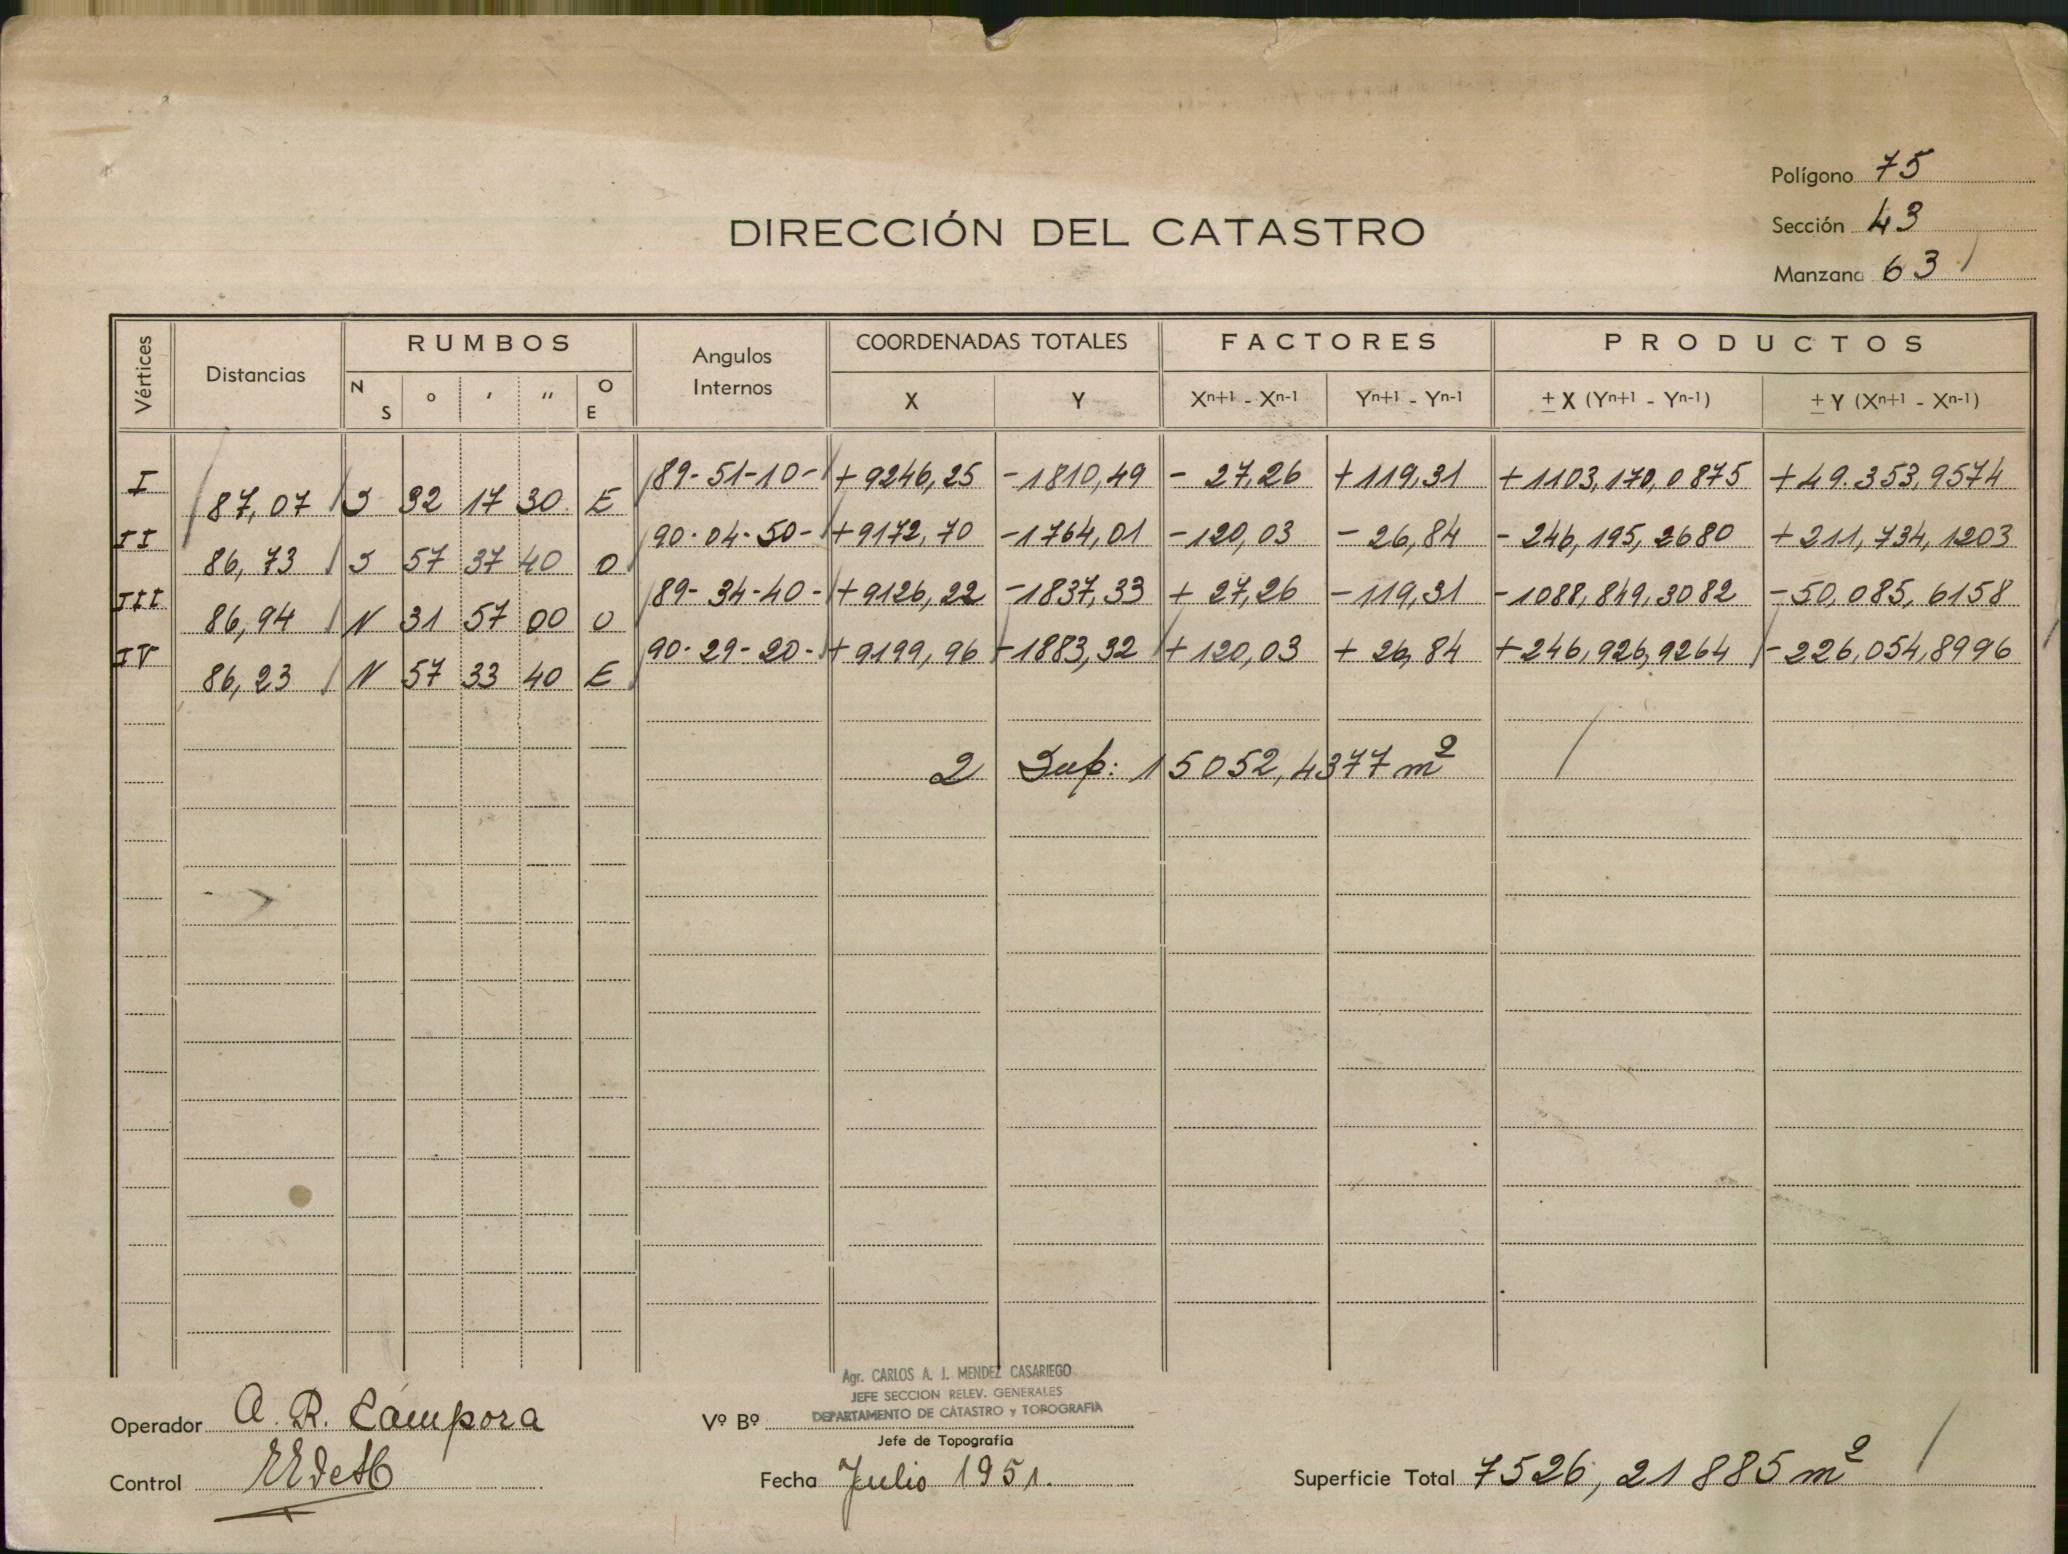 Polígono 75
DIRECCIÓN DEL CATASTRO
Sección 43
Manzana 63
Vértices Distancias RUMBOS Angulos Internos COORDENADAS TOTALES FACTORES PRODUCTOS
N S º ' '' O E X Y Xⁿ⁺¹ - Xⁿ⁻¹ Yⁿ⁺¹ - Yⁿ⁻¹ ± X (Yⁿ⁺¹ - Yⁿ⁻¹) ± Y (Xⁿ⁺¹ - Xⁿ⁻¹)
I 89-51-10- +9246,25 -1810,49 - 27,26 +119,31 +1103,170,0875 +49.353,9574
87,07 S 32 17 30 E
II 90-04-50- +9172,70 -1764,01 -120,03 - 26,84 - 246,195,2680 +211,734,1203
86,73 S 57 37 40 O
III 89-34-40- +9126,22 -1837,33 + 27,26 -119,31 -1088,849,3082 -50,085,6158
86,94 N 31 57 00 O
IV 90-29-20- +9199,96 -1883,32 +120,03 + 26,84 +246,926,9264 -226,054,8996
86,23 N 57 33 40 E
2 Sup: 15052,4377 m²
Agr. CARLOS A. J. MENDEZ CASARIEGO
JEFE SECCION RELEV. GENERALES
DEPARTAMENTO DE CATASTRO y TOPOGRAFIA
Operador A. R. Cámpora Vº Bº
Jefe de Topografía
Control Fecha Julio 1951. Superficie Total 7526,21885 m²